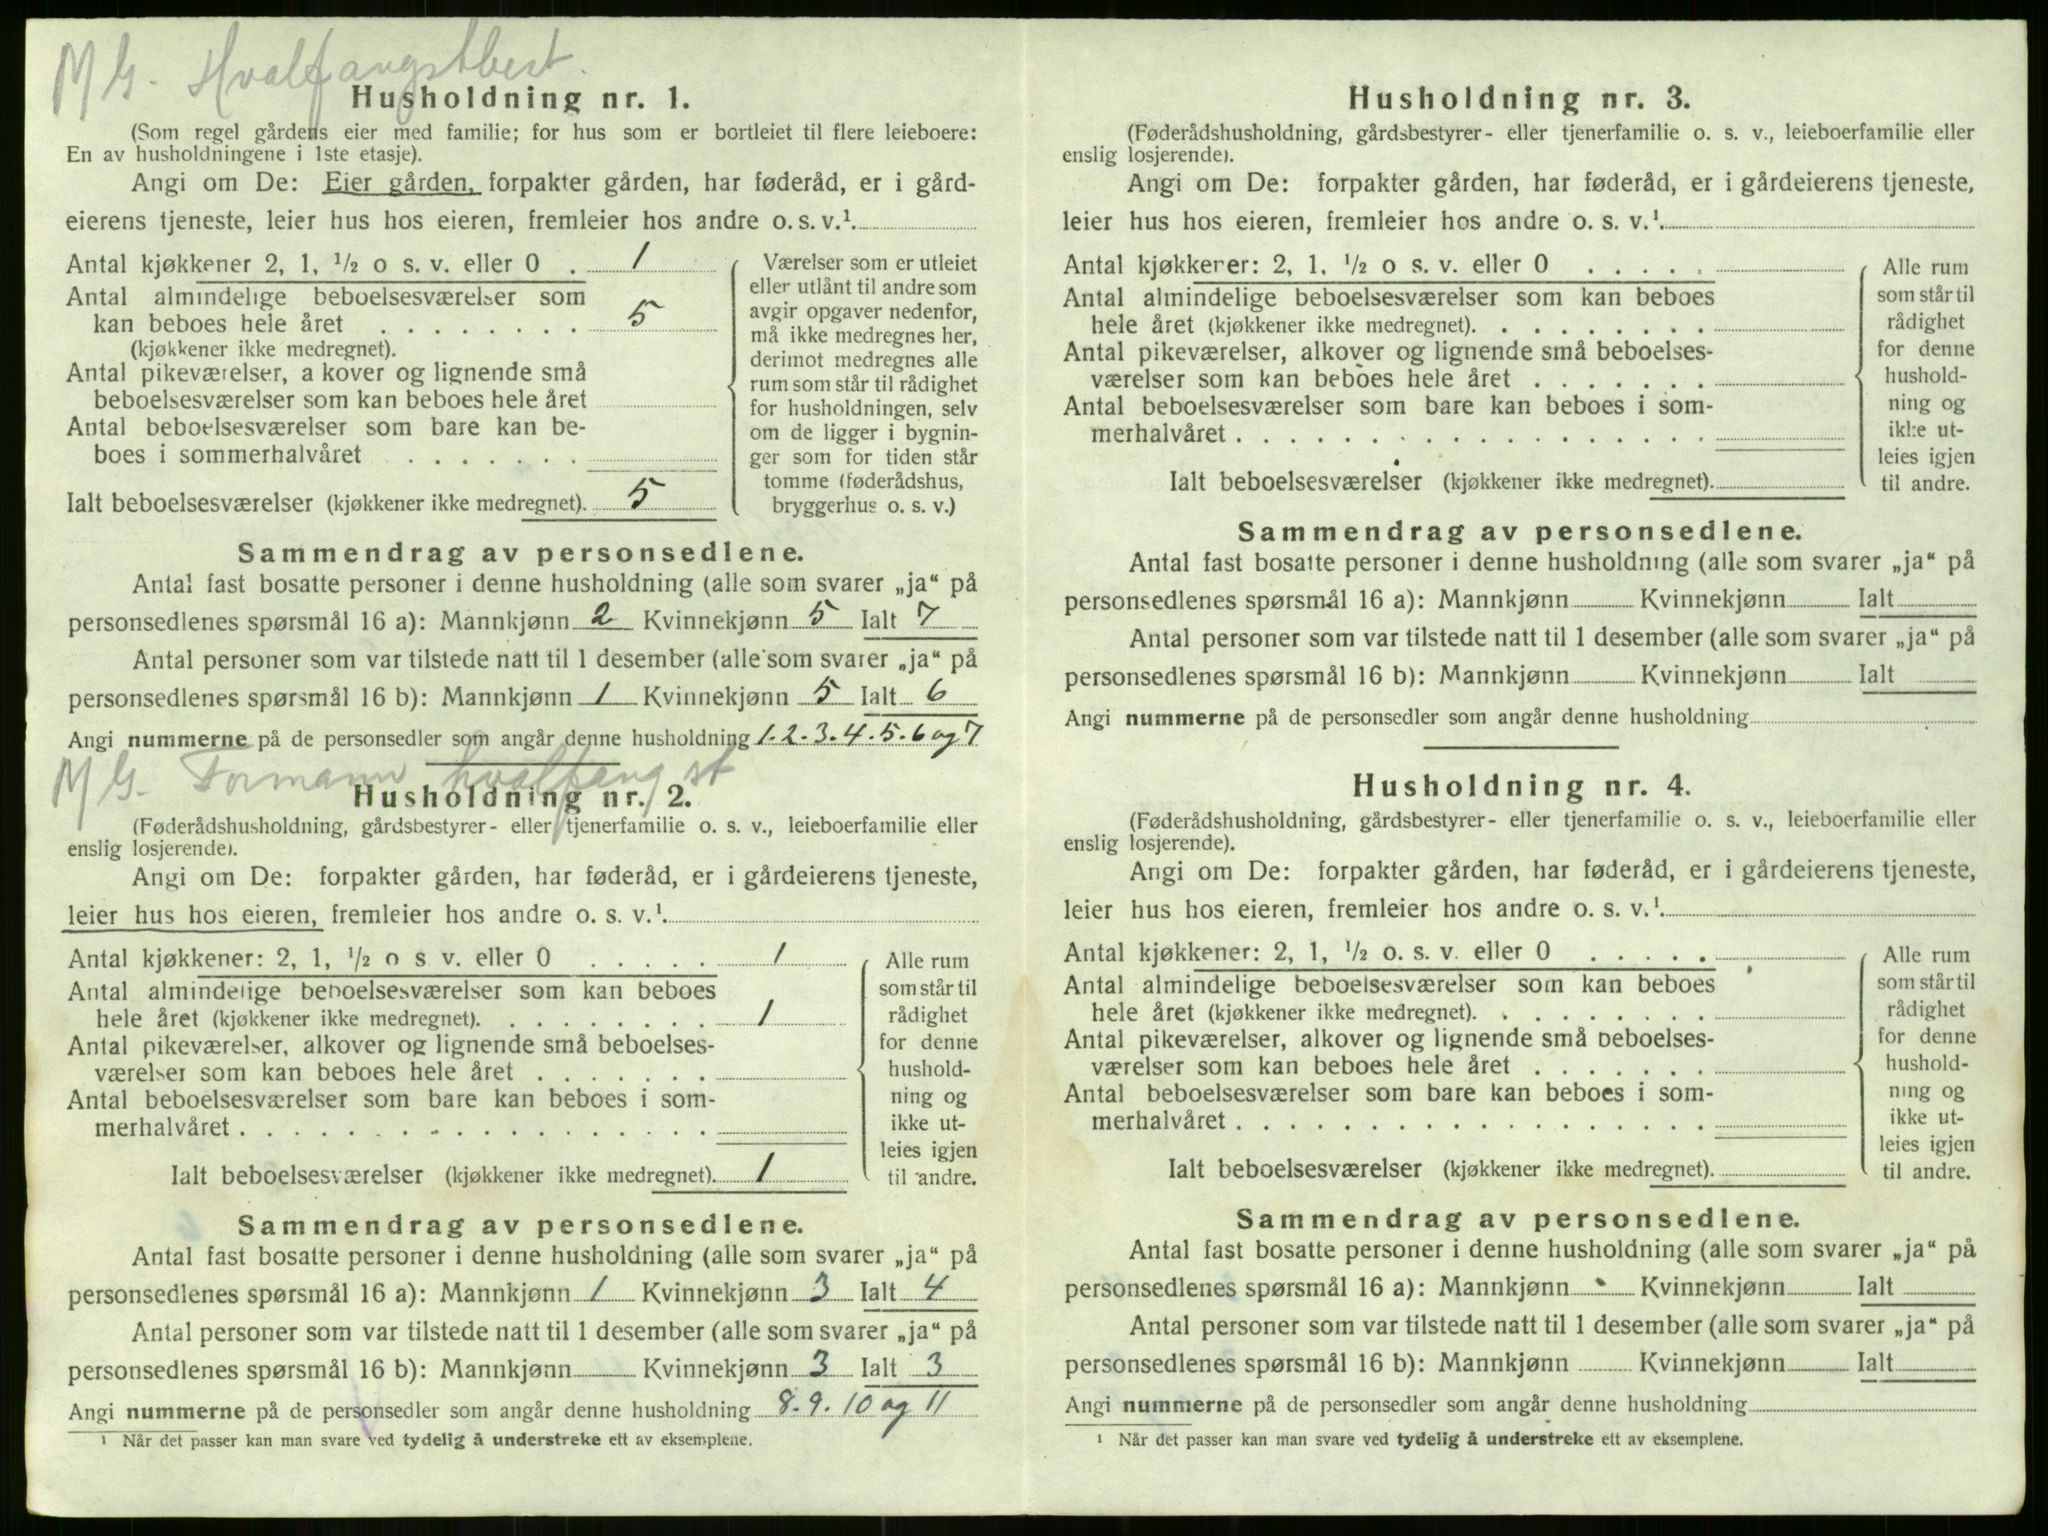 M G. Hvalfangstbest.
Husholdning nr. 1.
(Som regel gårdens eier med familie; for hus som er bortleiet til flere leieboere:
En av husholdningene i 1ste etasje).
Angi om De: Eier gården, forpakter gården, har føderåd, er i gård-
eierens tjeneste, leier hus hos eieren, fremleier hos andre o. s. v.¹
Antal kjøkkener 2, 1, ½ o s. v. eller 0 . 1
Antal almindelige beboelsesværelser som
kan beboes hele året . . . . . . . . 5
(kjøkkener ikke medregnet).
Antal pikeværelser, a kover og lignende små
beboelsesværelser som kan beboes hele året
Antal beboelsesværelser som bare kan be-
boes i sommerhalvåret . . . . . . .
Ialt beboelsesværelser (kjøkkener ikke medregnet). 5
Værelser som er utleiet
eller utlånt til andre som
avgir opgaver nedenfor,
må ikke medregnes her,
derimot medregnes alle
rum som står til rådighet
for husholdningen, selv
om de ligger i bygnin-
ger som for tiden står
tomme (føderådshus,
bryggerhus o. s. v.)
Sammendrag av personsedlene.
Antal fast bosatte personer i denne husholdning (alle som svarer „ja“ på
personsedlenes spørsmål 16 a): Mannkjønn 2 Kvinnekjønn 5 Ialt 7
Antal personer som var tilstede natt til 1 desember (alle som svarer „ja“ på
personsedlenes spørsmål 16 b): Mannkjønn 1 Kvinnekjønn 5 Ialt 6
Angi nummerne på de personsedler som angår denne husholdning 1.2.3.4.5.6 og 7
M G. Formann hvalfangst
Husholdning nr. 2.
(Føderådshusholdning, gårdsbestyrer- eller tjenerfamilie o. s. v., leieboerfamilie eller
enslig losjerende).
Angi om De: forpakter gården, har føderåd, er i gårdeierens tjeneste,
leier hus hos eieren, fremleier hos andre o. s. v.¹
Antal kjøkkener: 2, 1, ½ o s v. eller 0 . . . . . 1
Antal almindelige beboelsesværelser som kan beboes
hele året (kjøkkener ikke medregnet). . . . . . . . . 1
Antal pikeværelser, alkover og lignende små beboelses-
værelser som kan beboes hele året . . . . . . .
Antal beboelsesværelser som bare kan beboes i som-
merhalvåret . . . . . . . . . . . . . . . . . .
Ialt beboelsesværelser (kjøkkener ikke medregnet). 1
Alle rum
som står til
rådighet
for denne
hushold-
ning og
ikke ut-
leies igjen
til andre.
Sammendrag av personsedlene.
Antal fast bosatte personer i denne husholdning (alle som svarer „ja“ på
personsedlenes spørsmål 16 a): Mannkjønn 1 Kvinnekjønn 3 Ialt 4
Antal personer som var tilstede natt til 1 desember (alle som svarer „ja“ på
personsedlenes spørsmål 16 b): Mannkjønn Kvinnekjønn 3 Ialt 3
Angi nummerne på de personsedler som angår denne husholdning 8.9.10 og 11
¹ Når det passer kan man svare ved tydelig å understreke ett av eksemplene.
Husholdning nr. 3.
(Føderådshusholdning, gårdsbestyrer- eller tjenerfamilie o. s. v., leieboerfamilie eller
enslig losjerende).
Angi om De: forpakter gården, har føderåd, er i gårdeierens tjeneste,
leier hus hos eieren, fremleier hos andre o. s. v.¹
Antal kjøkkener: 2, 1, ½ o s. v. eller 0 . . . . .
Antal almindelige beboelsesværelser som kan beboes
hele året (kjøkkener ikke medregnet). . . . . . . . .
Antal pikeværelser, alkover og lignende små beboelses-
værelser som kan beboes hele året . . . . . . .
Antal beboelsesværelser som bare kan beboes i som-
merhalvåret . . . . . . . . . . . . . . . . . .
Ialt beboelsesværelser (kjøkkener ikke medregnet).
Alle rum
som står til
rådighet
for denne
hushold-
ning og
ikke ut-
leies igjen
til andre.
Sammendrag av personsedlene.
Antal fast bosatte personer i denne husholdning (alle som svarer „ja“ på
personsedlenes spørsmål 16 a): Mannkjønn Kvinnekjønn Ialt
Antal personer som var tilstede natt til 1 desember (alle som svarer „ja“ på
personsedlenes spørsmål 16 b): Mannkjønn Kvinnekjønn Ialt
Angi nummerne på de personsedler som angår denne husholdning
Husholdning nr. 4.
(Føderådshusholdning, gårdsbestyrer- eller tjenerfamilie o. s. v., leieboerfamilie eller
enslig losjerende).
Angi om De: forpakter gården, har føderåd, er i gårdeierens tjeneste,
leier hus hos eieren, fremleier hos andre o. s. v.¹
Antal kjøkkener: 2, 1, ½ o. s. v. eller 0 . . . . .
Antal almindelige beboelsesværelser som kan beboes
hele året (kjøkkener ikke medregnet). . . . . . . . .
Antal pikeværelser, alkover og lignende små beboelses-
værelser som kan beboes hele året . . . . . . .
Antal beboelsesværelser som bare kan beboes i som-
merhalvåret . . . . . . . . . . . . . . . . . .
Ialt beboelsesværelser (kjøkkener ikke medregnet).
Alle rum
som står til
rådighet
for denne
hushold-
ning og
ikke ut-
leies igjen
til andre.
Sammendrag av personsedlene.
Antal fast bosatte personer i denne husholdning (alle som svarer „ja“ på
personsedlenes spørsmål 16 a): Mannkjønn Kvinnekjønn Ialt
Antal personer som var tilstede natt til 1 desember (alle som svarer „ja“ på
personsedlenes spørsmål 16 b): Mannkjønn Kvinnekjønn Ialt
Angi nummerne på de personsedler som angår denne husholdning
¹ Når det passer kan man svare ved tydelig å understreke ett av eksemplene.